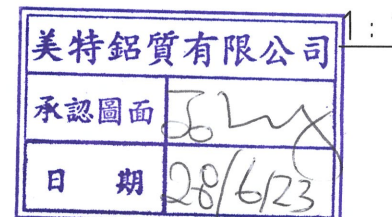 美特鋁質有限公司
承認圖面
日 期 28/6/23
1 :